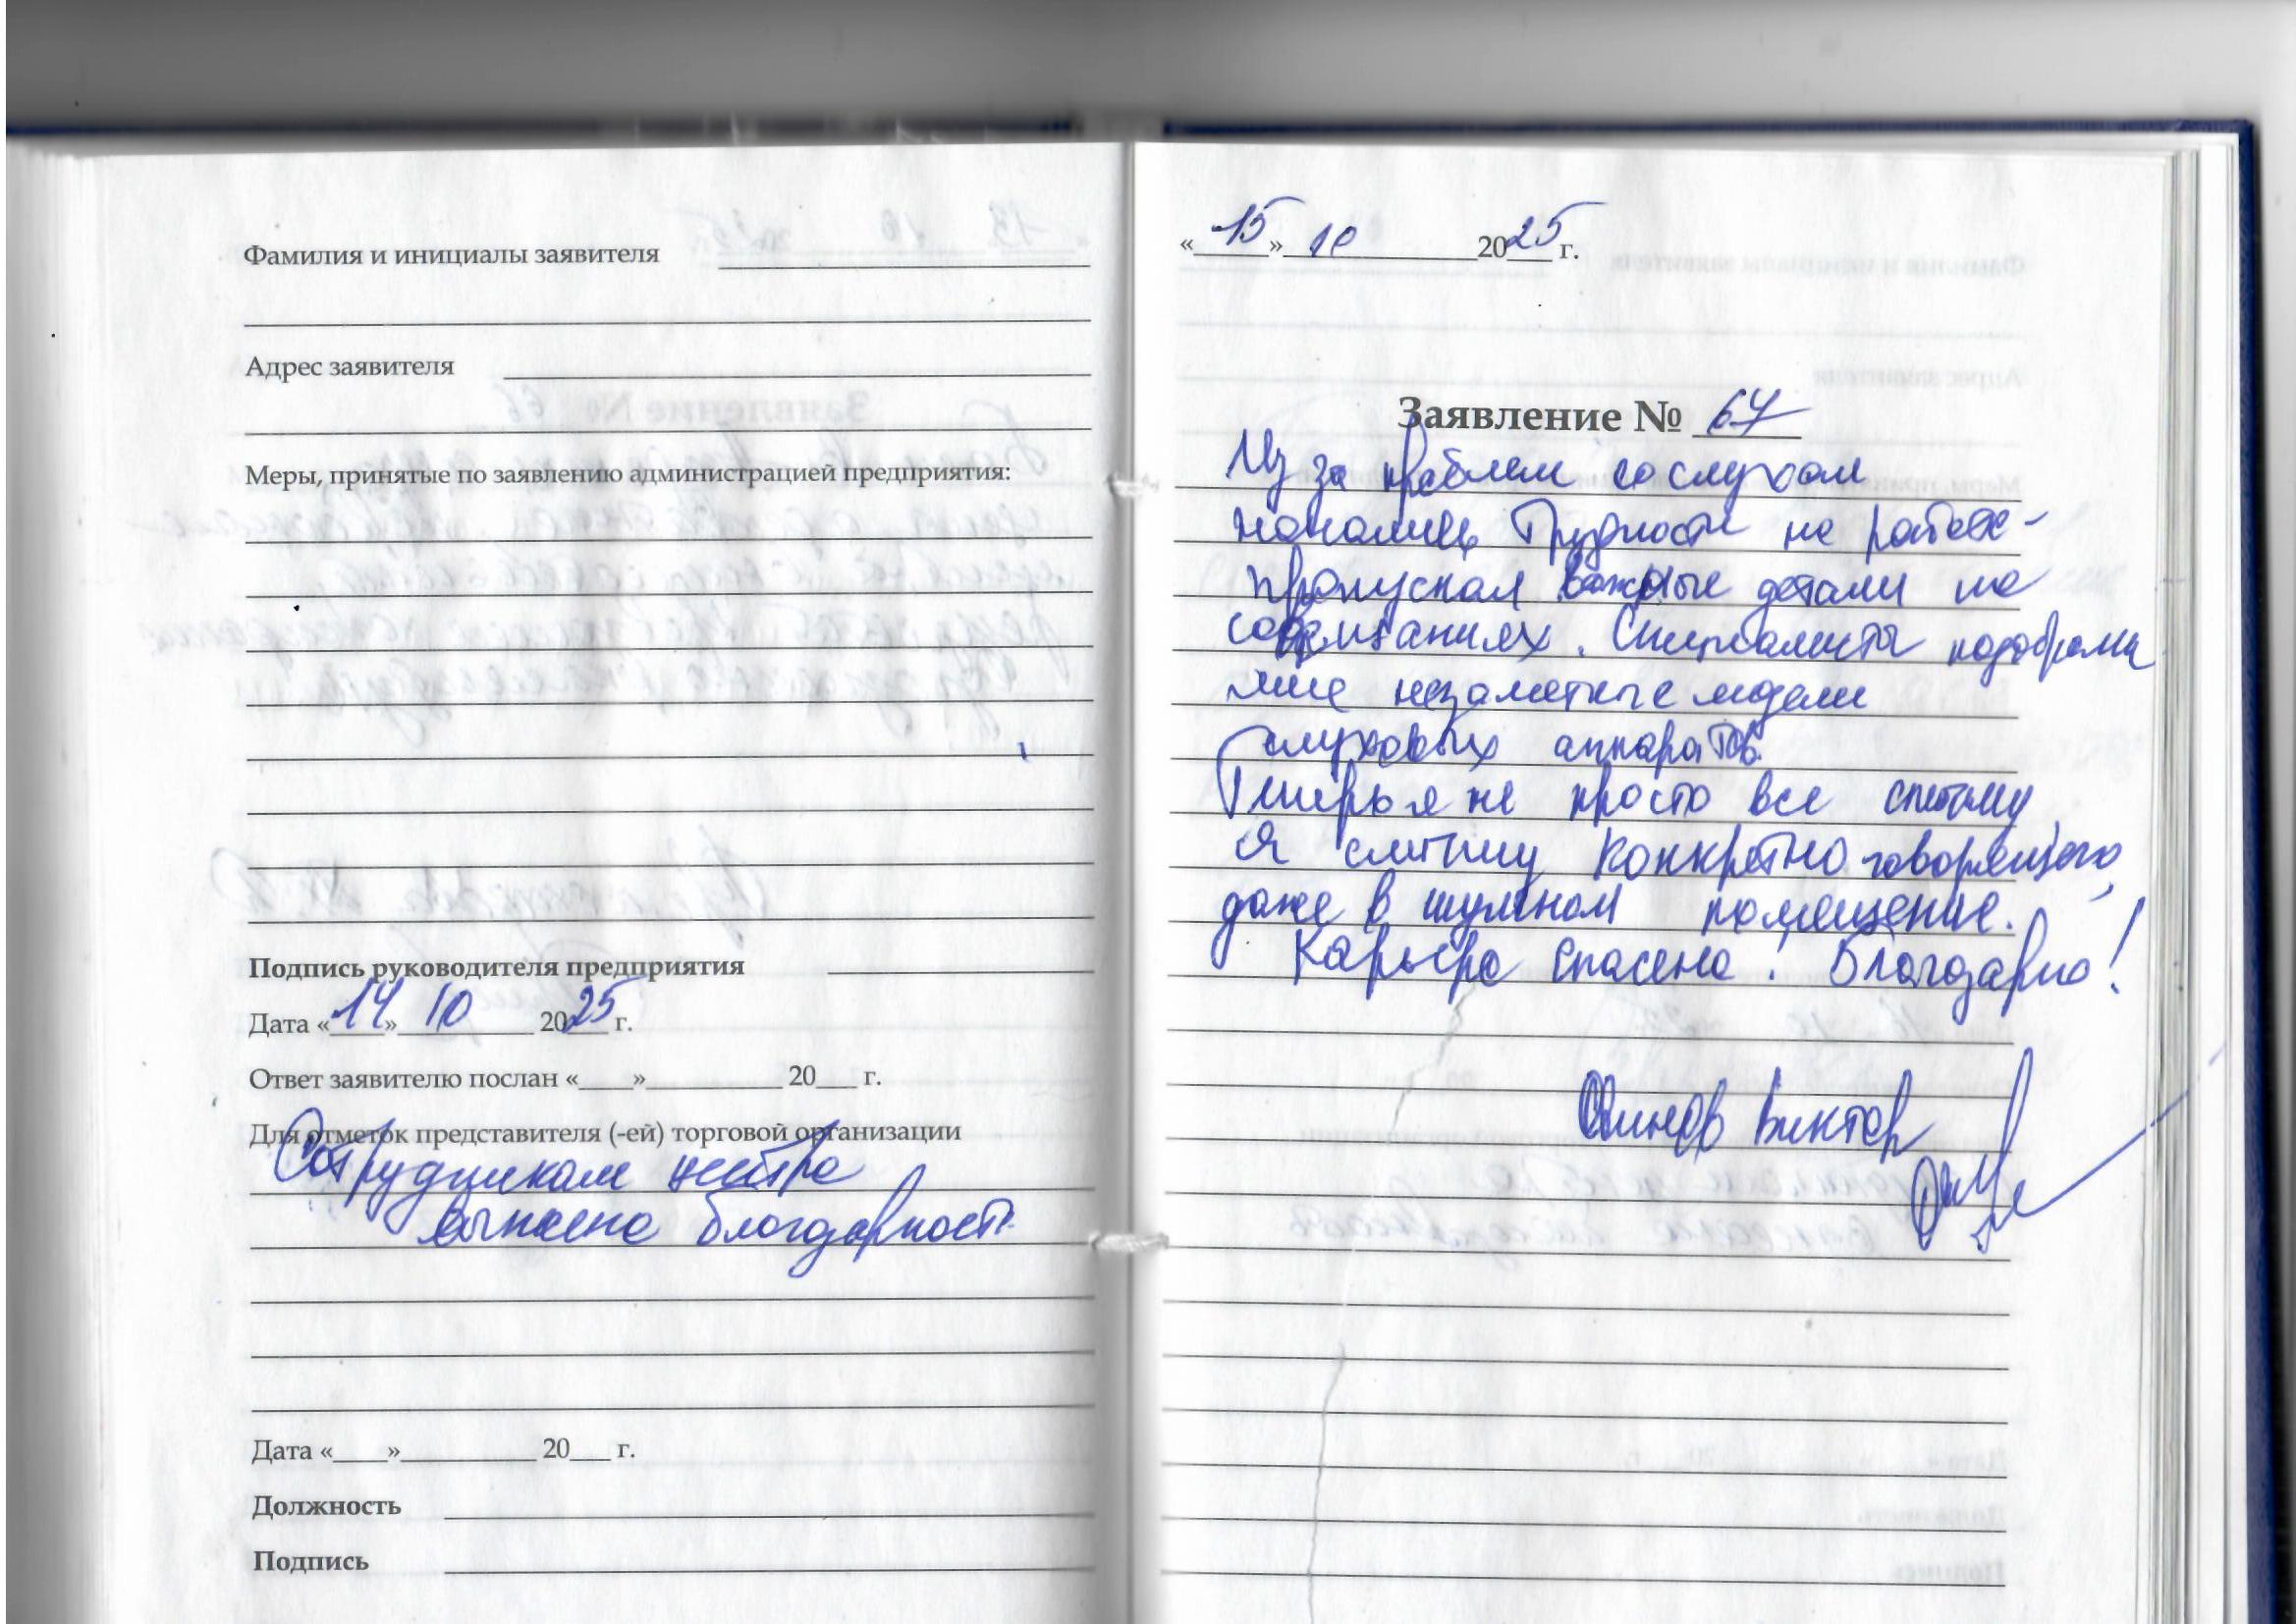 Фамилия и инициалы заявителя
Адрес заявителя
Меры, принятые по заявлению администрацией предприятия:
Подпись руководителя предприятия
Дата «14» 10 2025 г.
Ответ заявителю послан «____»__________ 20___ г.
Для отметок представителя (-ей) торговой организации
Сотрудникам центра
вынесена благодарность
Дата «____»__________ 20___ г.
Должность
Подпись
«15» 10 2025 г.
Заявление № 67
Из за проблем со слухом
начались трудности на работе -
пропускал важные детали на
совещаниях. Специалисты подобрали
мне незаметные модели
слуховых аппаратов.
Теперь я не просто все слышу,
я слышу конкретно говорящего,
даже в шумном помещение.
Карьера спасена! Благодарю!
Виктор